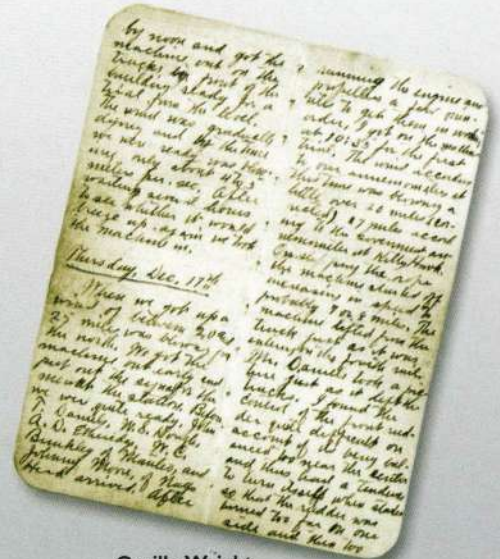 by noon and got the
machine out on the
tracks in front of the
building ready for a
trial from the level.
The wind was gradually
dying and by the time
we were ready was
only about 4 to 5
meters per sec. After
waiting several hours
to see whether it would
breeze up again we took
the machine in.
Thursday, Dec. 17th
When we got up a
wind of between 20 and
27 miles was blowing from
the north. We got the
machine out early and
put out the signal for the
men at the station. Before
we were quite ready, John
T. Daniels, W. S. Dough,
A. D. Etheridge, W. C.
Brinkley of Manteo, and
Johnny Moore, of Nags
Head arrived. After
running the engine and
propellers a few min-
utes to get them in work
order, I got on the machine
at 10:35 for the first
trial. The wind according
to our anemometers at
this time was blowing a
little over 20 miles
27 miles accord
ing to the Government ane
mometer at Kitty Hawk.
On slipping the rope
the machine started off
increasing in speed to
probably 7 or 8 miles. The
machine lifted from the
truck just as it was
entering on the fourth rail.
Mr. Daniels took a pic
ture just as it left the
tracks. I found the
control of the front rud
der quite difficult on
account of its being bal
anced too near the center
and thus had a tendency
to turn itself when started
so that the rudder was
turned too far on one
side and then too